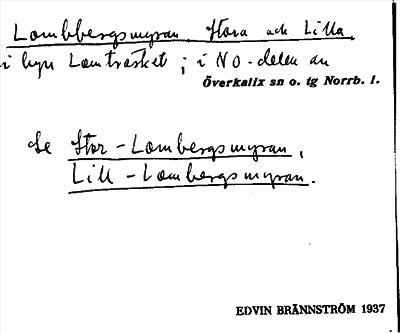 Lombbergsmyran, Stora och Lilla,
i byn Lomträsket ; i NO-delen av
Överkalix sn o. tg Norrb. l.
Se Stor-Lombergsmyran,
Lill-Lombergsmyran.
EDVIN BRÄNNSTRÖM 1937